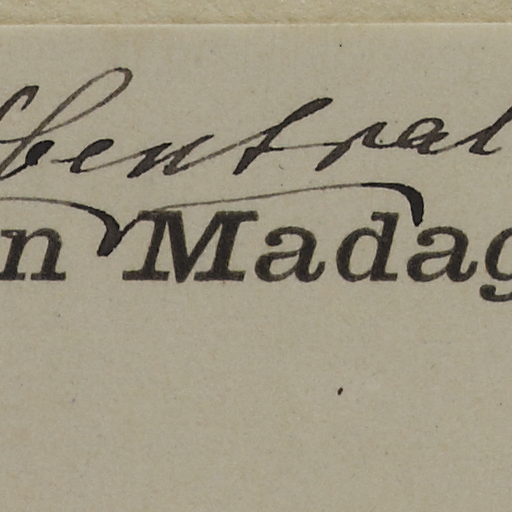 Central
n Madag